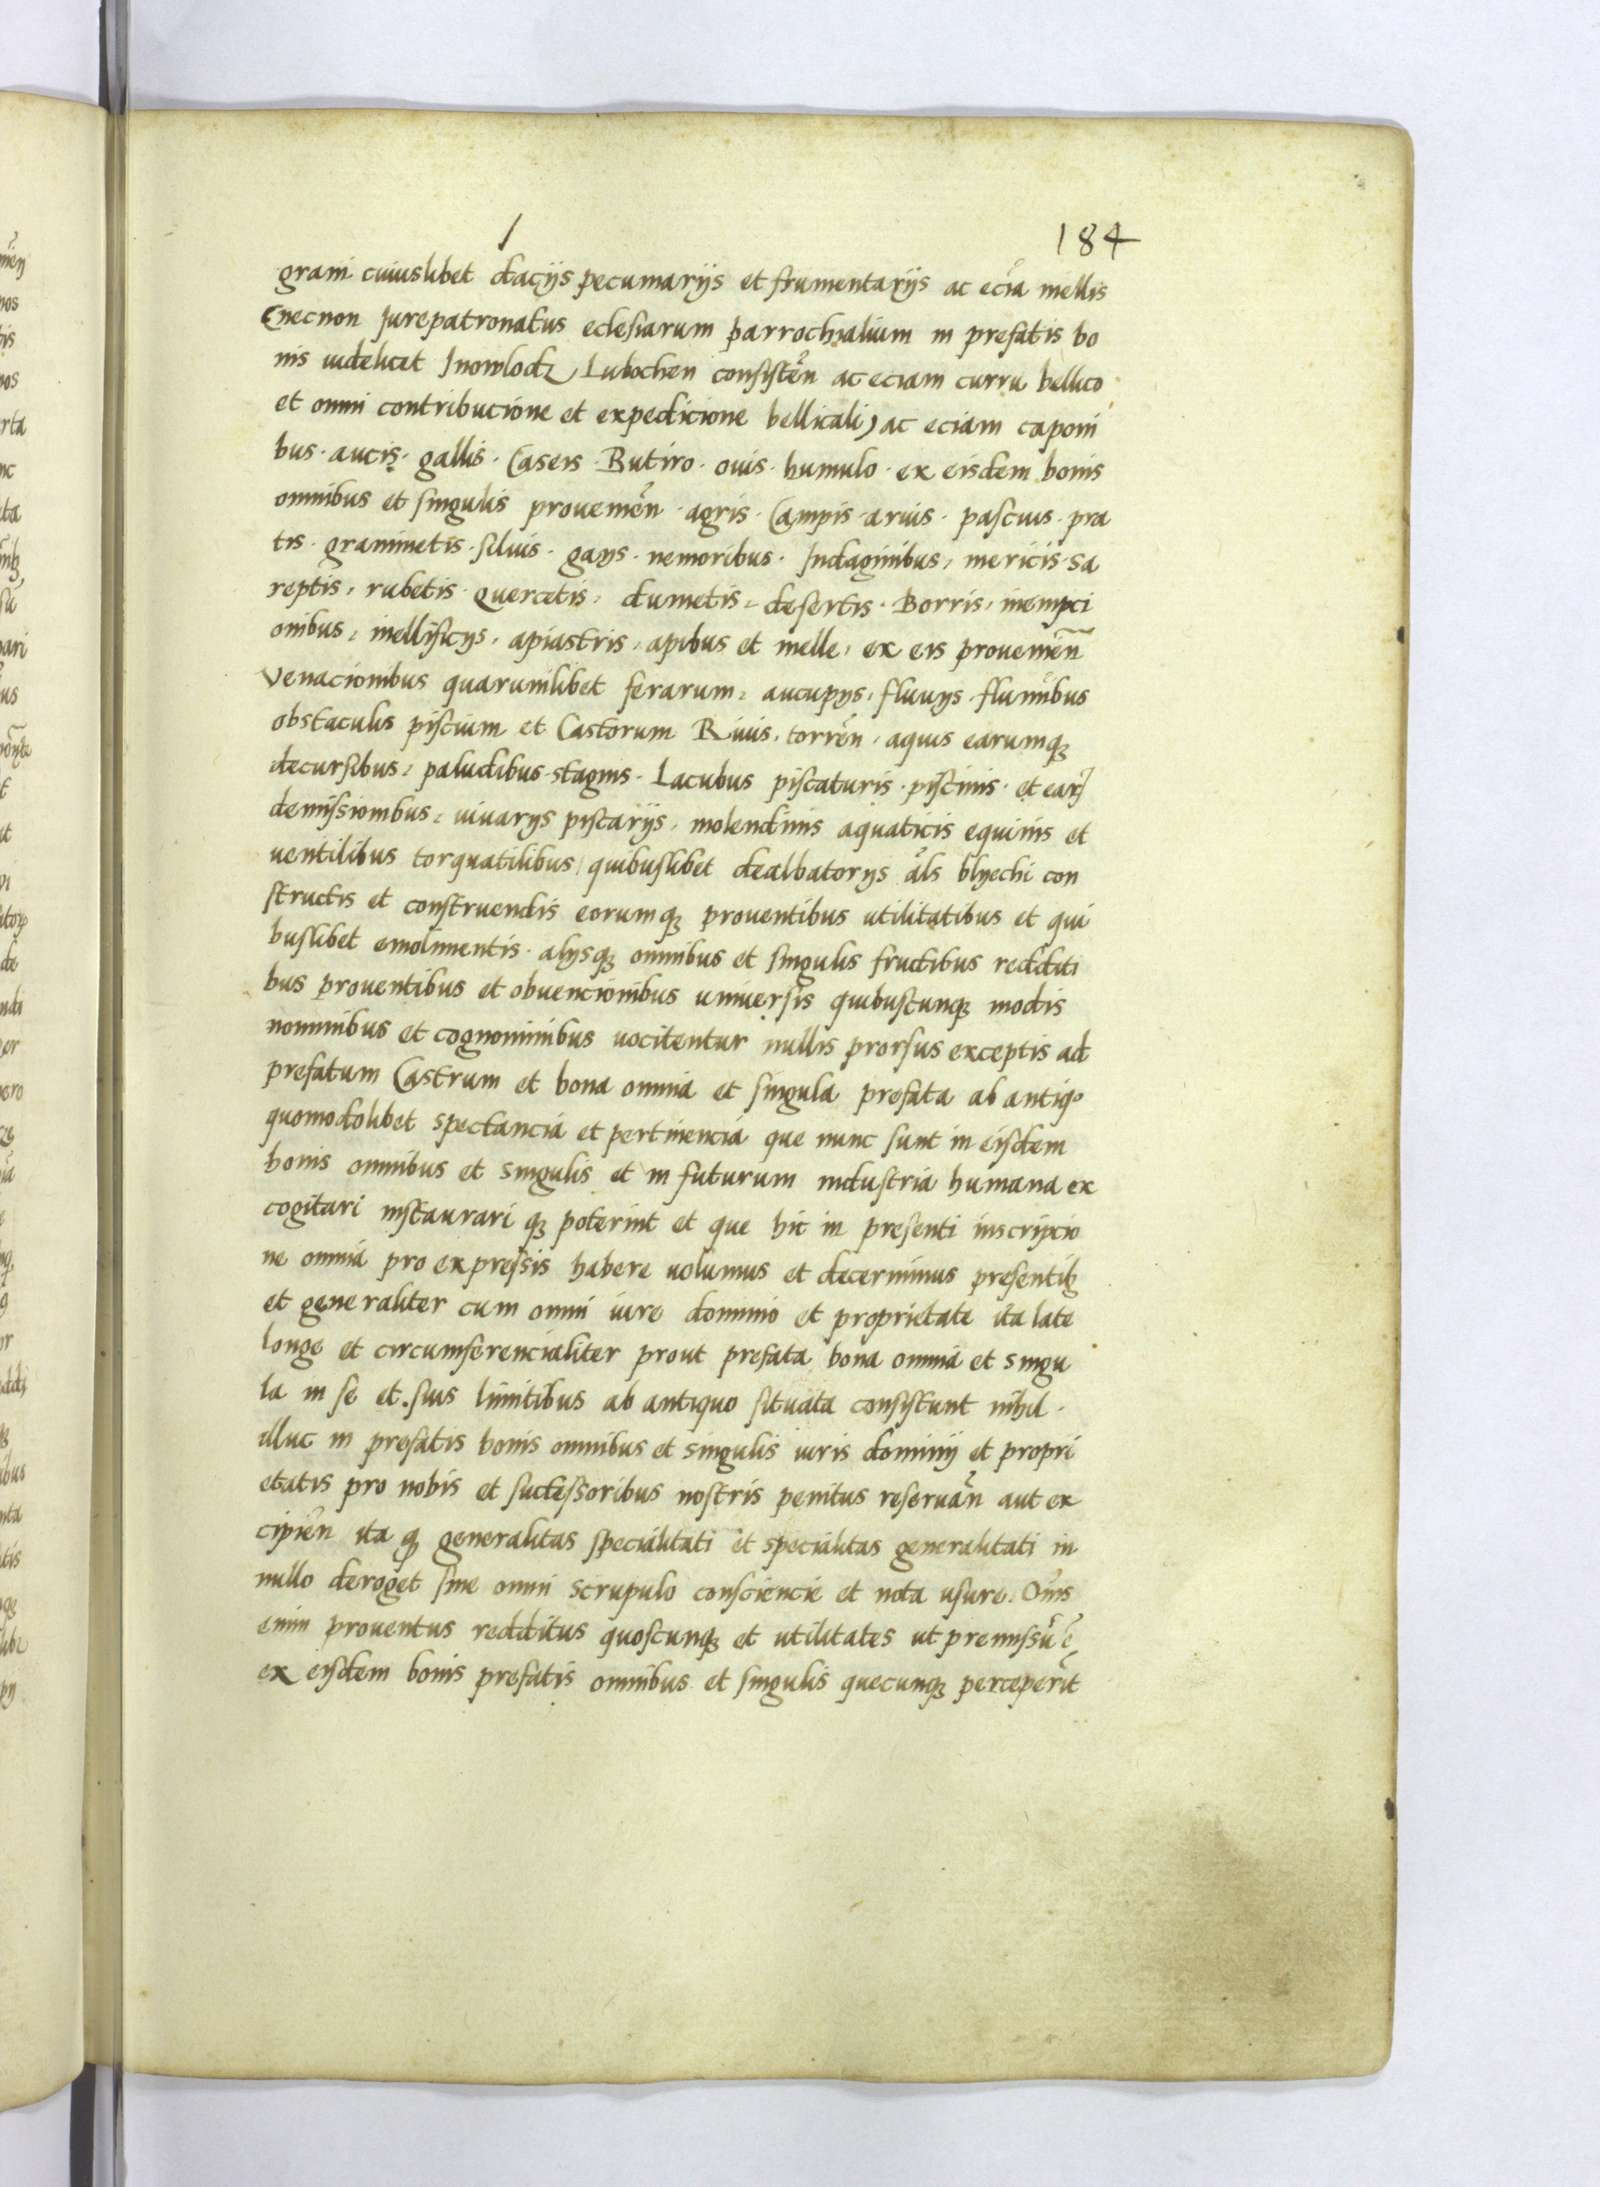 184
grani cuiuslibet daciis pecuniariis et frumentariis ac eciā mellis
(necnon Jurepatronatus eclesiarum parrochialium in prefatis bo
nis videlicet Jnowlodz Lubochen consisteñ ac eciam curru bellico
et omni contribucione et expedicione bellicali) ac eciam caponi
bus · aucis · gallis · Caseis · Butiro · ouis · humulo · ex eisdem bonis
omnibus et singulis prouenieñ · agris · Campis · aruis · pascuis · pra
tis · graminetis · siluis · gays · nemoribus · Indaginibus, mericis · sa
reptis, rubetis · quercetis, dumetis, desertis · Borris, inempci
onibus, mellificys, apiastris, apibus et melle, ex eis prouenieñ
Venacionibus quarumlibet ferarum, aucupys, fluuys · flumībus
obstaculis piscium et Castorum Riuis, torreñ, aquis earumq3
decursibus, paludibus · stagnis · Lacubus piscaturis · piscinis · et earꝝ
demissionibus, viuarys piscariis, molendinis aquaticis equinis et
uentilibus torquatilibus quibuslibet dealbatorys āls blyechi con
structis et construendis eorumq3 prouentibus utilitatibus et qui
buslibet emolimentis · alysq3 omnibus et singulis fructibus redditi
bus prouentibus et obuencionibus uniuersis quibuscunq3 modis
nominibus et cognominibus uocitentur nullis prorsus exceptis ad
prefatum Castrum et bona omnia et singula prefata ab antiqo
quomodolibet spectancia et pertinencia que nunc sunt in eisdem
bonis omnibus et singulis et in futurum industria humana ex
cogitari instaurari q3 poterint et que hic in presenti inscripcio
ne omnia pro expressis habere uolumus et decernimus presentib3
et generaliter cum omni iure dominio et proprietate ita late
longe et circumferencialiter prout prefata bona omnia et singu
la in se et suis limitibus ab antiquo situata consistunt nihil ·
illuc in prefatis bonis omnibus et singulis iuris dominij et propri
etatis pro nobis et successoribus nostris penitus reseruañ aut ex
cipieñ ita ꝙ generalitas specialitati et specialitas generalitati in
nullo deroget sine omni scrupulo consciencie et nota usure. Oīns
enim prouentus redditus quoscunq3 et utilitates ut premissū ē
ex eisdem bonis prefatis omnibus et singulis quecunq3 perceperīt